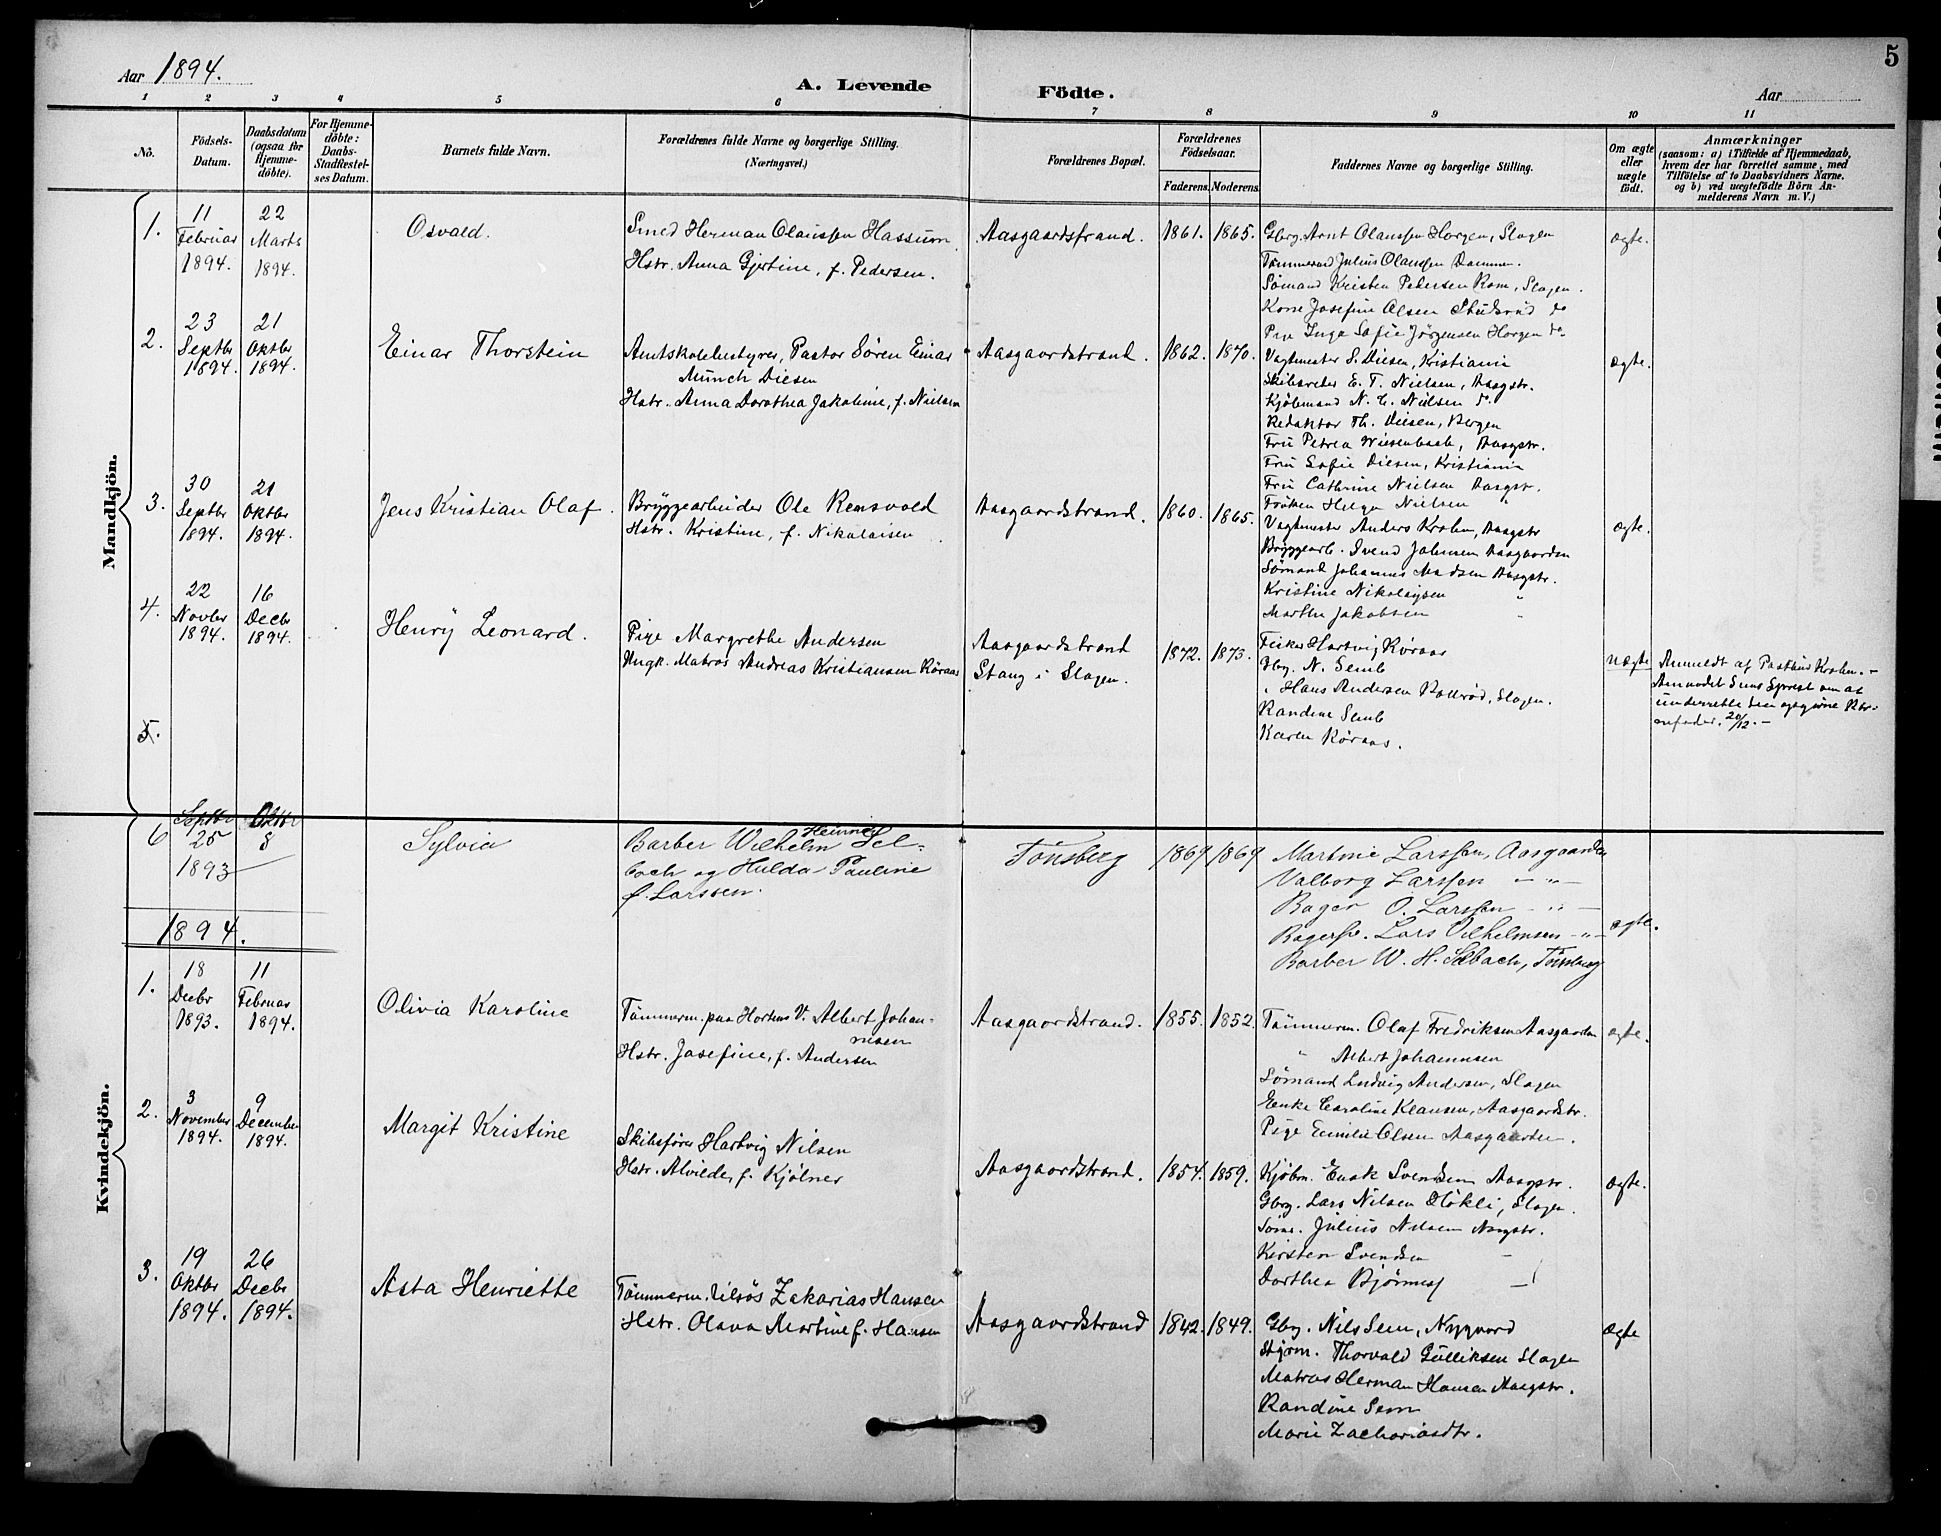 5
Aar 1894.
A. Levende Födte.
Aar
1 2 3 4 5 6 7 8 9 10 11
No.
Födsels-Datum.
Daabsdatum (ogsaa for Hjemme-döbte).
For Hjemme-döbte: Daabs-Stadfæstel-ses Datum.
Barnets fulde Navn.
Forældrenes fulde Navne og borgerlige Stilling. (Næringsvei.)
Forældrenes Bopæl.
Forældrenes Födselsaar.
Faderens. Moderens.
Faddernes Navne og borgerlige Stilling.
Om ægte eller uægte födt.
Anmærkninger
(saasom: a) i Tilfælde af Hjemmedaab,
hvem der har forrettet samme, med
Tilföielse af to Daabsvidners Navne,
og b) ved uægtefödte Börn An-
melderens Navn m. V.)
Mandkjön.
1. 11 Februar 1894. 22 Marts 1894.
Osvald.
Smed Herman Olaussen Hassum
Hstr. Anna Gjertine, f. Pedersen.
Aasgaardstrand. 1861. 1865.
Gbrg. Arnt Olaussen Horgen, Slagen
Tømmermd Julius Olaussen Dammen.
Sømand Kristen Pedersen Rom, Slagen.
Kone Josefine Olsen do
Pige Inga Sofie Jörgensen Horgen do
ægte.
2. 23 Septbr 1894. 21 Oktbr 1894.
Einar Thorstein
Amtskolebestyrer, Pastor Sören Einar
Münch Diesen
Hstr. Anna Dorothea Jakobine, f. Nielsen
Aasgaardstrand. 1862. 1870.
Vagtmester S. Diesen, Kristiania
Skibsreder E. T. Nielsen, Aasgstr.
Kjöbmand N. C. Nielsen do.
Redaktør Th. Diesen, Bergen
Fru Petrea Wiesenbach, Aasgstr.
Fru Sofie Diesen, Kristiania
Fru Cathrine Nielsen Aasgstr.
Frøken Helga Nielsen "
ægte.
3. 30 Septbr 1894. 21 Oktbr 1894.
Jens Kristian Olaf.
Bryggearbeider Ole Remsvold
Hstr. Kristine, f. Nikolaisen
Aasgaardstrand. 1860. 1865.
Vagtmester Anders Krohn, Aasgstr
Bryggearb. Svend Johnsen Aasgaarden
Sømand Johannes Madsen Aasgstr.
Kristine Nikolaysen "
Marthe Jakobsen "
ægte.
4. 22 Novbr 1894. 16 Decbr 1894.
Henry Leonard.
Pige Margrethe Andersen
Ungk. Matros Andreas Kristiansen Röraas
Aasgaardstrand
Stang i Slagen.
1872. 1873.
Fisker Hartvig Röraas
Gbrg. N. Semb
" Hans Andersen Rollerød, Slagen.
Randine Semb
Karen Röraas.
uægte
Anmeldt af Krohn.
20/12.
5.
Kvindekjön.
6 Septbr 25 1893 Oktbr 8
Sylvia
Barber Wilhelm Heinrich Sel-
bach og Hulda Pauline
f. Larssen.
Tönsberg 1869 1869
Martine Larssen, Aasgaarden
Valborg Larssen - " -
Bager O. Larssen - " -
Bagersv. Lars Vilhelmsen - " -
Barber W. H. Selbach, Tönsberg
ægte.
1894.
1. 18 Decbr 1893. 11 Februar 1894.
Olivia Karoline
Tömmerm. paa Hortens V. Albert Johan-
nesen
Hstr. Josefine, f. Andersen
Aasgaardstrand. 1855. 1852.
Tömmerm. Olaf Fredriksen Aasgaarden
" Albert Johannesen
Sømand Ludvig Andersen, Slagen
Enke Caroline Klausen, Aasgaardstr.
Pige Emilie Olsen Aasgaarden.
ægte.
2. 3 November 1894. 9 December 1894.
Margit Kristine
Skibsfører Hartvig Nilsen
Hstr. Alvilde, f. Kjölner
Aasgaardstrand. 1854. 1859.
Kjöbm. Enok Svendsen Aasgstr.
Gbrg. Lars Nilsen Slagen.
Søm. Julius Nilsen Aasgstr.
Kirsten Svendsen -
Dorthea Bjørnes -
ægte.
3. 19 Oktbr 1894. 26 Decbr 1894.
Asta Henriette
Tömmerm. Zakarias Hansen
Hstr. Olava Martine f. Hansen
Aasgaardstrand 1842. 1849.
Gbrg. Nils Sem, Nygaard
Styrm. Thorvald Gulliksen Slagen
Matros Herman Hansen Aasgstr.
Randine Sem
Marie Zachariasdtr.
ægte